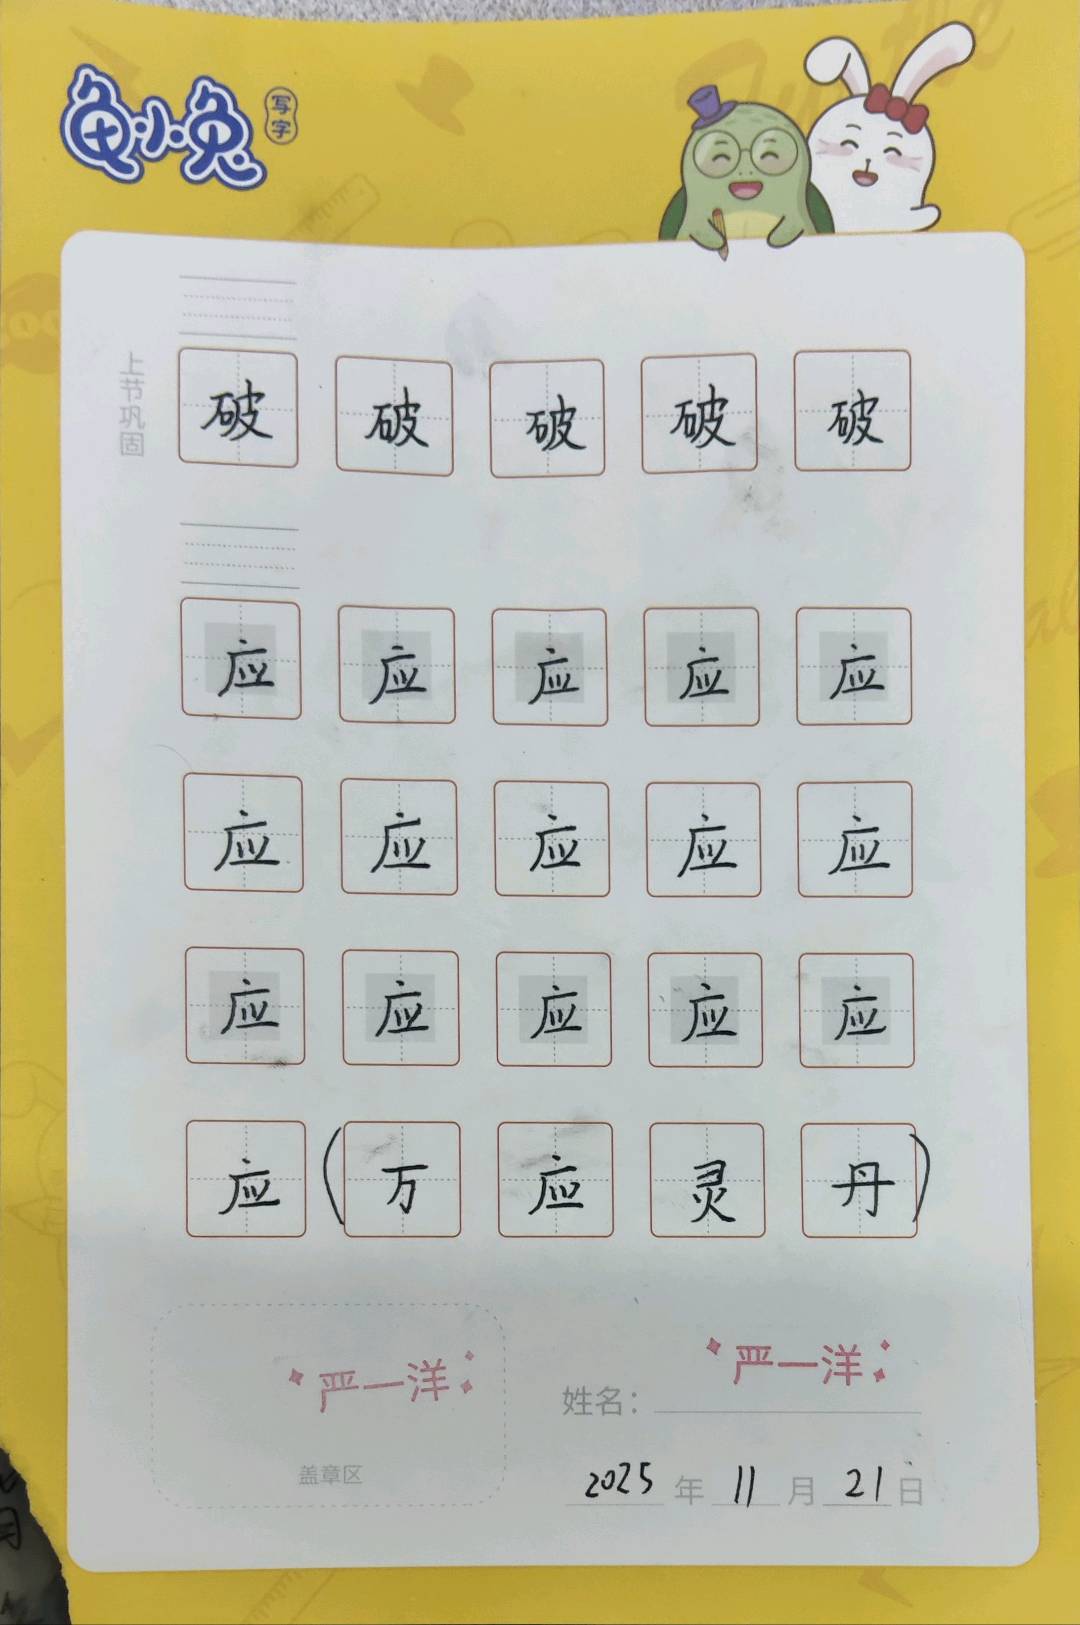 龟小兔 写字
上节巩固
破 破 破 破 破
应 应 应 应 应
应 应 应 应 应
应 应 应 应 应
应（万 应 灵 丹）
严一洋
盖章区
姓名：严一洋
2025 年 11 月 21 日